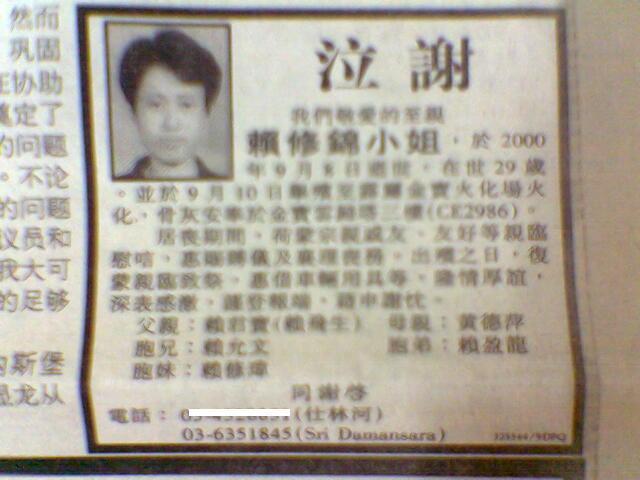 然而
巩固
在协助
奠定了
的问题
。不论
的问题
议员和
我大可
的足够
的斯堡
龙从
泣謝
我們敬愛的至親
賴修錦小姐，於2000
年9月8日逝世，在世29歲
。並於9月10日 金寶火化場火
化，骨灰安奉於金寶 (CE2986)。
居喪期間，荷蒙宗親戚友、友好等親臨
慰唁，惠賜賻儀及襄理喪務。出殯之日，復
蒙親臨致祭，惠借車輛用具等，隆情厚誼，
深表感激，謹登報端，藉申謝忱。
父親：賴君寶(賴 生) 母親：黃德萍
胞兄：賴允文 胞弟：賴盈龍
胞妹：賴修璋
同謝啓
電話： (仕林河)
03-6351845(Sri Damansara)